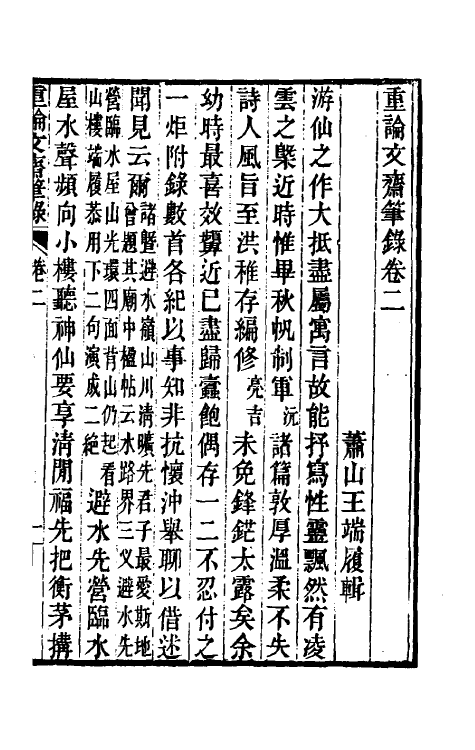 重論文齋筆錄卷二
蕭山王端履輯
游仙之作大抵盡屬寓言故能抒寫性靈飄然有凌
雲之槩近時惟畢秋帆制軍沅諸篇敦厚溫柔不失
詩人風旨至洪稚存編修亮吉未免鋒鋩太露矣余
幼時最喜效顰近已盡歸蠹飽偶存一二不忍付之
一炬附錄數首各紀以事知非抗懷沖舉聊以借述
聞見云爾諸曁避水嶺山川清曠先君子最愛斯地
曾題其廟中楹帖云水路界三义避水先
營臨水屋山光環四面背山仍起看
山樓端履恭用下二句演成二絶避水先營臨水
屋水聲頻向小樓聽神仙要享清閒福先把衡茅搆
重論文齋筆錄
卷二
一